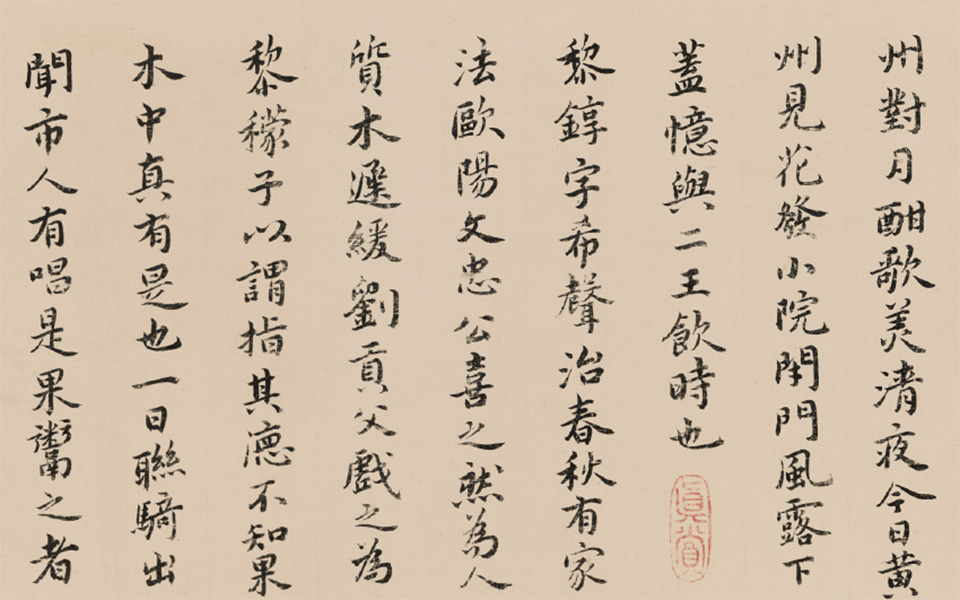 州對月酣歌美清夜今日黃
州見花發小院閉門風露下
蓋憶與二王飲時也
真賞
黎錞字希聲治春秋有家
法歐陽文忠公喜之然為人
質木遲緩劉貢父戲之為
黎檬子以謂指其德不知果
木中真有是也一日聯騎出
聞市人有唱是果鬻之者